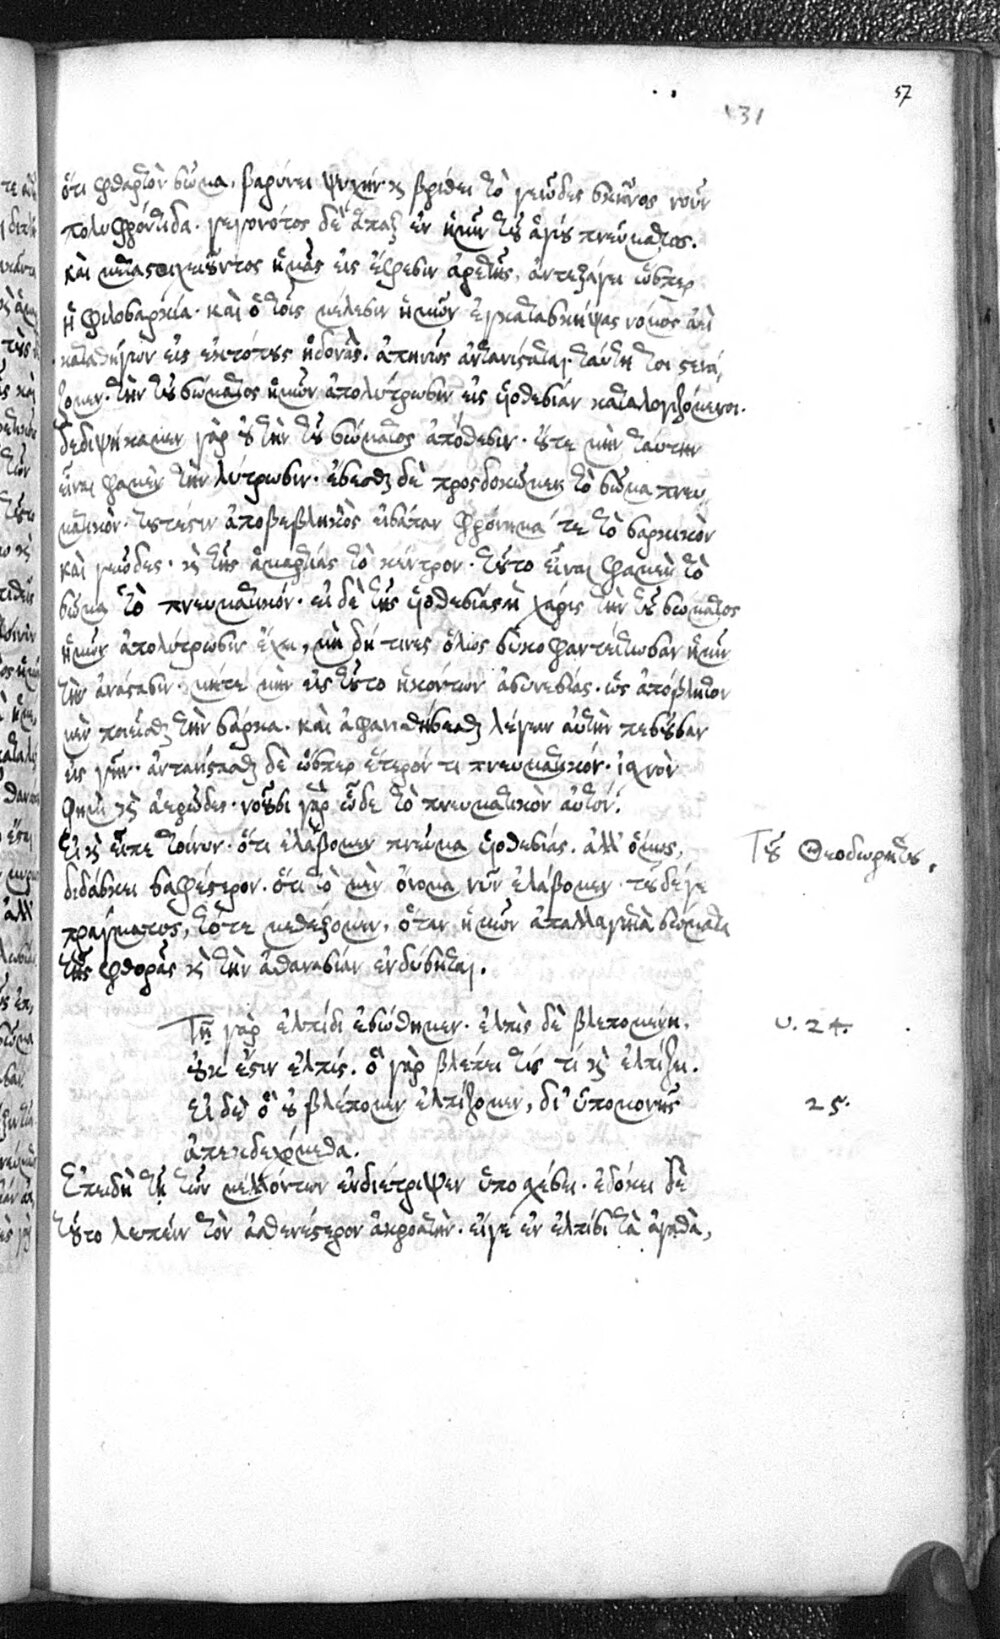 57
131
ὅτι φθαρτὸν σῶμα, βαρύνει ψυχήν· καὶ βρίθει τὸ γεῶδες σκῆνος νοῦν
πολυφρόντιδα. γεγονότος δὲ ἅπαξ ἐν ἡμῖν τοῦ ἁγίου πνεύματος.
καὶ μεταστοιχειοῦντος ἡμᾶς εἰς ἕξρεσιν ἀρετῆς, ἀντεξάγει ὥσπερ
ἡ φιλοσαρκία. καὶ ὁ τοῖς μέλεσιν ἡμῶν ἐγκατασκήψας νόμος ἀεὶ
καταθήγων εἰς ἐκτόπους ἡδονάς. ἀπηνῶς ἀντανίσταται. ταύτῃ τοι στενά,
ζομεν. τὴν τοῦ σώματος ἡμῶν ἀπολύτρωσιν εἰς υἱοθεσίαν καταλογιζόμενοι.
δεδιψήκαμεν γὰρ οὐ τὴν τοῦ σώματος ἀπόθεσιν. οὔτε μὴν ταύτην
εἶναι φαμὲν τὴν λύτρωσιν. ἔσεσθαι δὲ προσδοκῶμεν τὸ σῶμα πνευ
ματικὸν. τουτέστιν ἀποβεβληκὸς εἰσάπαν φρόνημα τε τὸ σαρκικὸν
καὶ γεῶδες. καὶ τῆς ἁμαρτίας τὸ κέντρον. τοῦτο εἶναι φαμὲν τὸ
σῶμα τὸ πνευματικόν. εἰ δὲ τῆς υἱοθεσίας ἡ χάρις τὴν τοῦ σώματος
ἡμῶν ἀπολύτρωσιν ἔχει, μὴ δή τινες ὅλως συκοφαντείτωσαν ἡμῶν
τὴν ἀνάστασιν. μήτε μὴν εἰς τοῦτο ἡκόντων ἀσυνεσίας. ὡς ἀπόβλητον
μὲν ποιεῖσθαι τὴν σάρκα. καὶ ἀφανισθήσεσθαι λέγειν αὐτὴν πεσοῦσαν
εἰς γῆν. ἀντανίστασθαι δὲ ὥσπερ ἕτερόν τι πνευματικόν. ἰσχνὸν
φημι καὶ ἀερῶδες. νοοῦσι γὰρ ὧδε τὸ πνευματικὸν αὐτοί.
Εἰ καὶ εἶπε τοίνυν. ὅτι ἐλάβομεν πνεῦμα υἱοθεσίας. ἀλλ' ὅμως,
Τοῦ Θεοδωρήτου.
διδάσκει σαφέστερον. ὅτι τὸ μὲν ὄνομα νῦν ἐλάβομεν. τοῦ δέγε
πράγματος, τότε μεθέξομεν, ὅταν ἡμῶν ἀπαλλαγῇ τὰ σώματα
τῆς φθορᾶς καὶ τὴν ἀθανασίαν ἐνδύσηται.
Τῇ γὰρ ἐλπίδι ἐσώθημεν. ἐλπὶς δὲ βλεπομένη.
υ. 24.
οὐκ ἔστιν ἐλπίς. ὃ γὰρ βλέπει τίς τί καὶ ἐλπίζει.
Εἰ δὲ ὃ οὐ βλέπομεν ἐλπίζομεν, δι' ὑπομονῆς
25.
ἀπεκδεχόμεθα.
Ἐπειδὴ τῇ τῶν μελλόντων ἐνδιέτριψεν ὑποσχέσει. ἐδόκει δὲ
τοῦτο λυπεῖν τὸν ἀσθενέστερον ἀκροατὴν. εἴγε ἐν ἐλπίδι τὰ ἀγαθὰ,